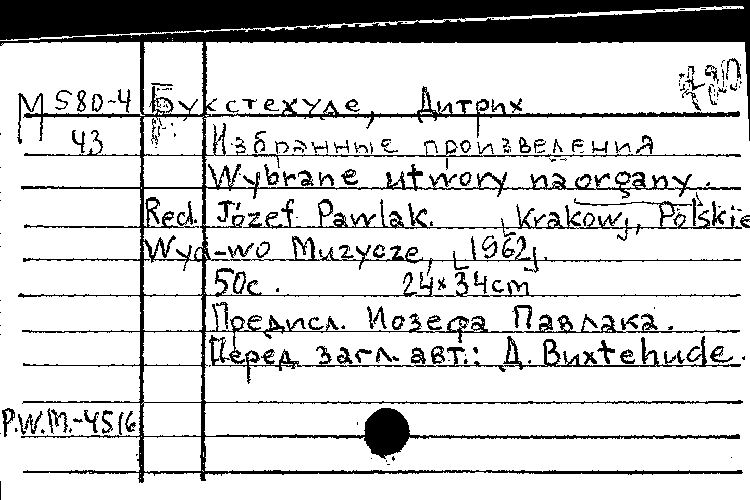 М 580-4 Букстехуде, Дитрих
43 Избранные произведения
Wybrane utwory na organy.
Red. Józef Pawlak. [Krakow], Polskie
Wyd-wo Muzycze, [1962].
50с. 24×34cm
Предисл. Иозефа Павлака.
Перед загл. авт.: D. Buxtehude.
P.W.M.-4516